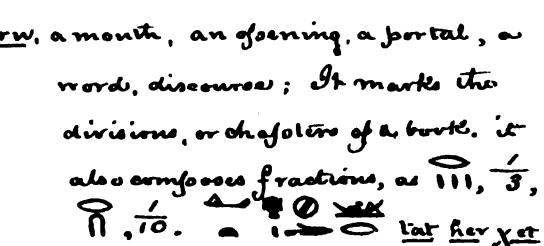 rw, a month, an opening, a portal, a
word, discourse; It marks the
divisions, or chapters of a book. it
also composes fractions, as 𓂋𓏪, 1/3,
𓂋𓎆, 1/10. tat her xet